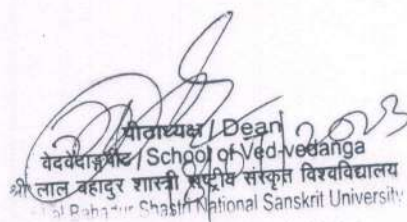 पीठाध्यक्ष / Dean
वेदवेदाङ्गपीठ / School of Ved-vedanga
श्री लाल बहादुर शास्त्री राष्ट्रीय संस्कृत विश्वविद्यालय
Shastri National Sanskrit University